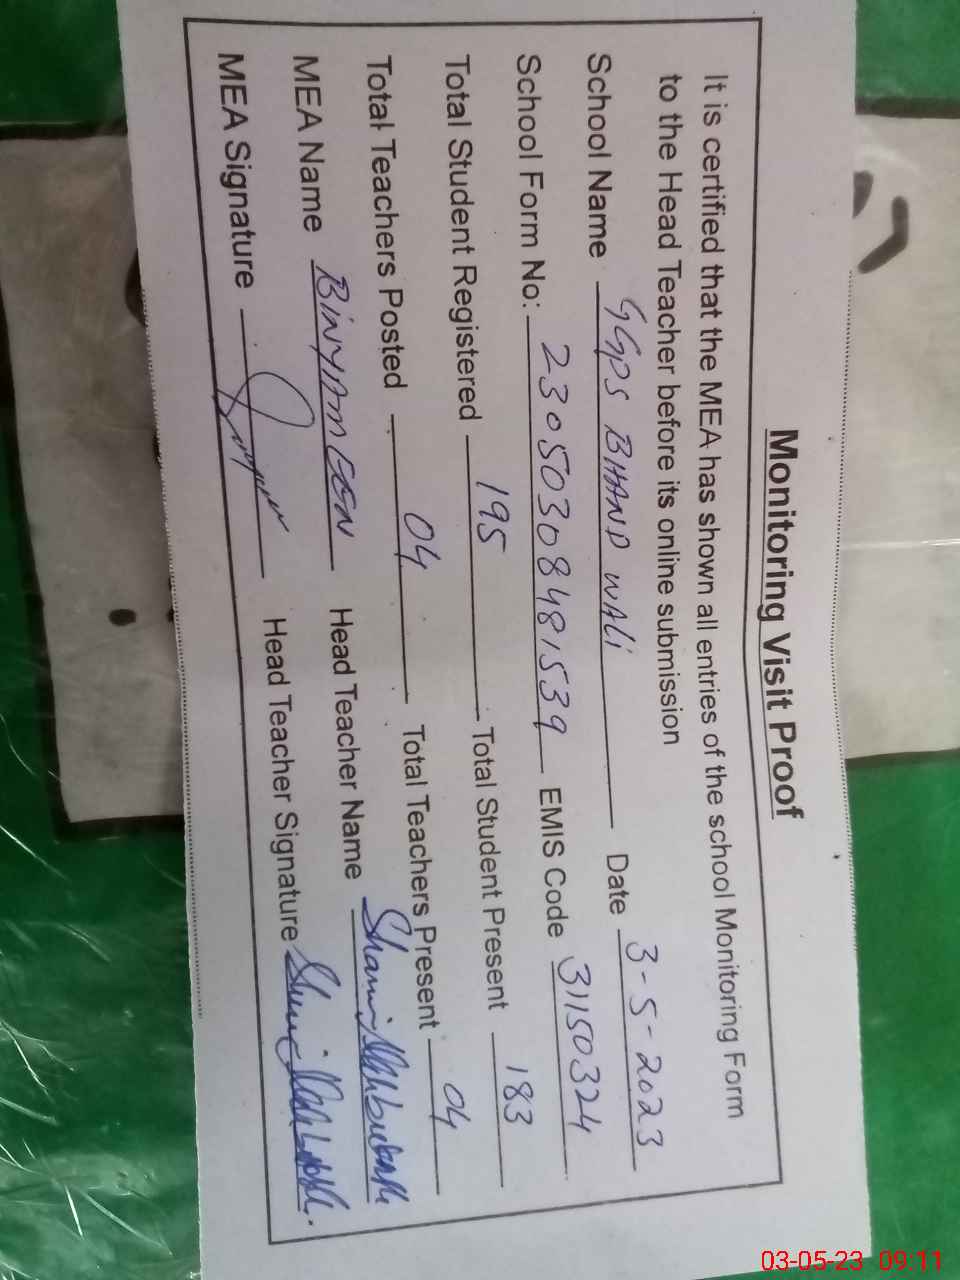 Monitoring Visit Proof
It is certified that the MEA has shown all entries of the school Monitoring Form
to the Head Teacher before its online submission
School Name GGPS BHAND WALI Date 3-5-2023
School Form No: 23050308481539 EMIS Code 31150324
Total Student Registered 195 Total Student Present 183
Total Teachers Posted 04 Total Teachers Present 04
MEA Name BINYAMEEN Head Teacher Name
MEA Signature Head Teacher Signature
03-05-23 09:11